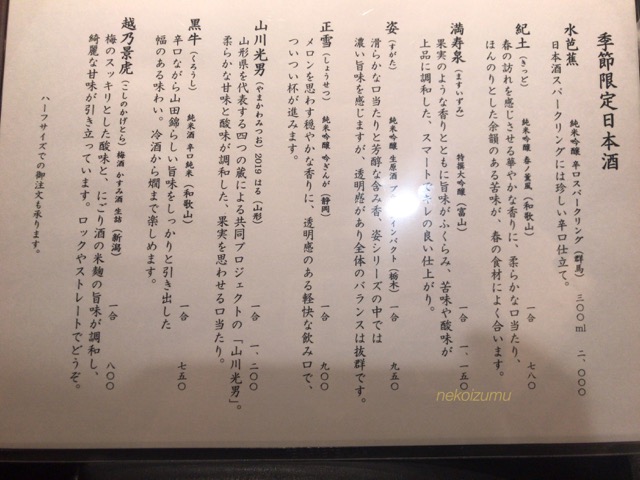 季節限定日本酒
水芭蕉 純米吟醸 辛口スパークリング（群馬） 三〇〇ml 二、〇〇〇
日本酒スパークリングには珍しい辛口仕立て。
紀土（きっど） 純米吟醸 春ノ薫風（和歌山） 一合 七八〇
春の訪れを感じさせる華やかな香りに、柔らかな口当たり、
ほんのりとした余韻のある苦味が、春の食材によく合います。
満寿泉（ますいずみ） 特撰大吟醸（富山） 一合 一、一五〇
果実のような香りとともに旨味がふくらみ、苦味や酸味が
上品に調和した、スマートでキレの良い仕上がり。
姿（すがた） 純米吟醸 生原酒 ブインパクト（栃木） 一合 九五〇
滑らかな口当たりと芳醇な含み香、姿シリーズの中では
濃い旨味を感じますが、透明感があり全体のバランスは抜群です。
正雪（しょうせつ） 純米吟醸 吟ぎんが（静岡） 一合 九〇〇
メロンを思わす穏やかな香りに、透明感のある軽快な飲み口で、
ついつい杯が進みます。
山川光男（やまかわみつお） 2019 はる（山形） 一合 一、二〇〇
山形県を代表する四つの蔵による共同プロジェクトの「山川光男」。
柔らかな甘味と酸味が調和した、果実を思わせる口当たり。
黒牛（くろうし） 純米酒 辛口純米（和歌山） 一合 七五〇
辛口ながら山田錦らしい旨味をしっかりと引き出した
幅のある味わい。冷酒から燗まで楽しめます。
越乃景虎（こしのかげとら） 梅酒 かすみ酒 生詰（新潟） 一合 八〇〇
梅のスッキリとした酸味と、にごり酒の米麹の旨味が調和し、
綺麗な甘味が引き立っています。ロックやストレートでどうぞ。
ハーフサイズでの御注文も承ります。
nekoizumu